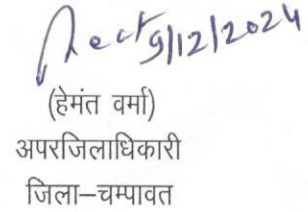 9/12/2024
(हेमंत वर्मा)
अपरजिलाधिकारी
जिला–चम्पावत